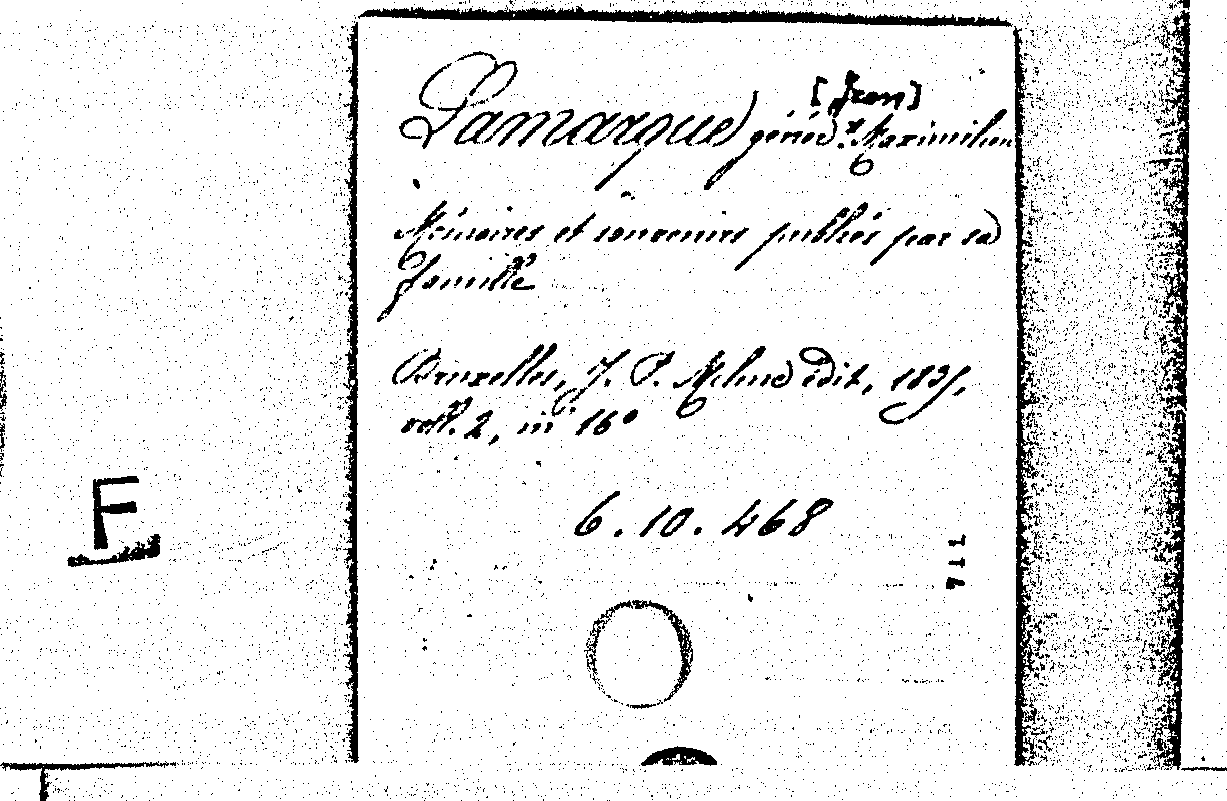 [Jean]
Lamarque génér.l Maximilien
Mémoires et souvenirs publiés par sa
famille
Bruxelles, J. P. Meline édit, 1835,
voll. 2, in 16°
F
6.10.468
711